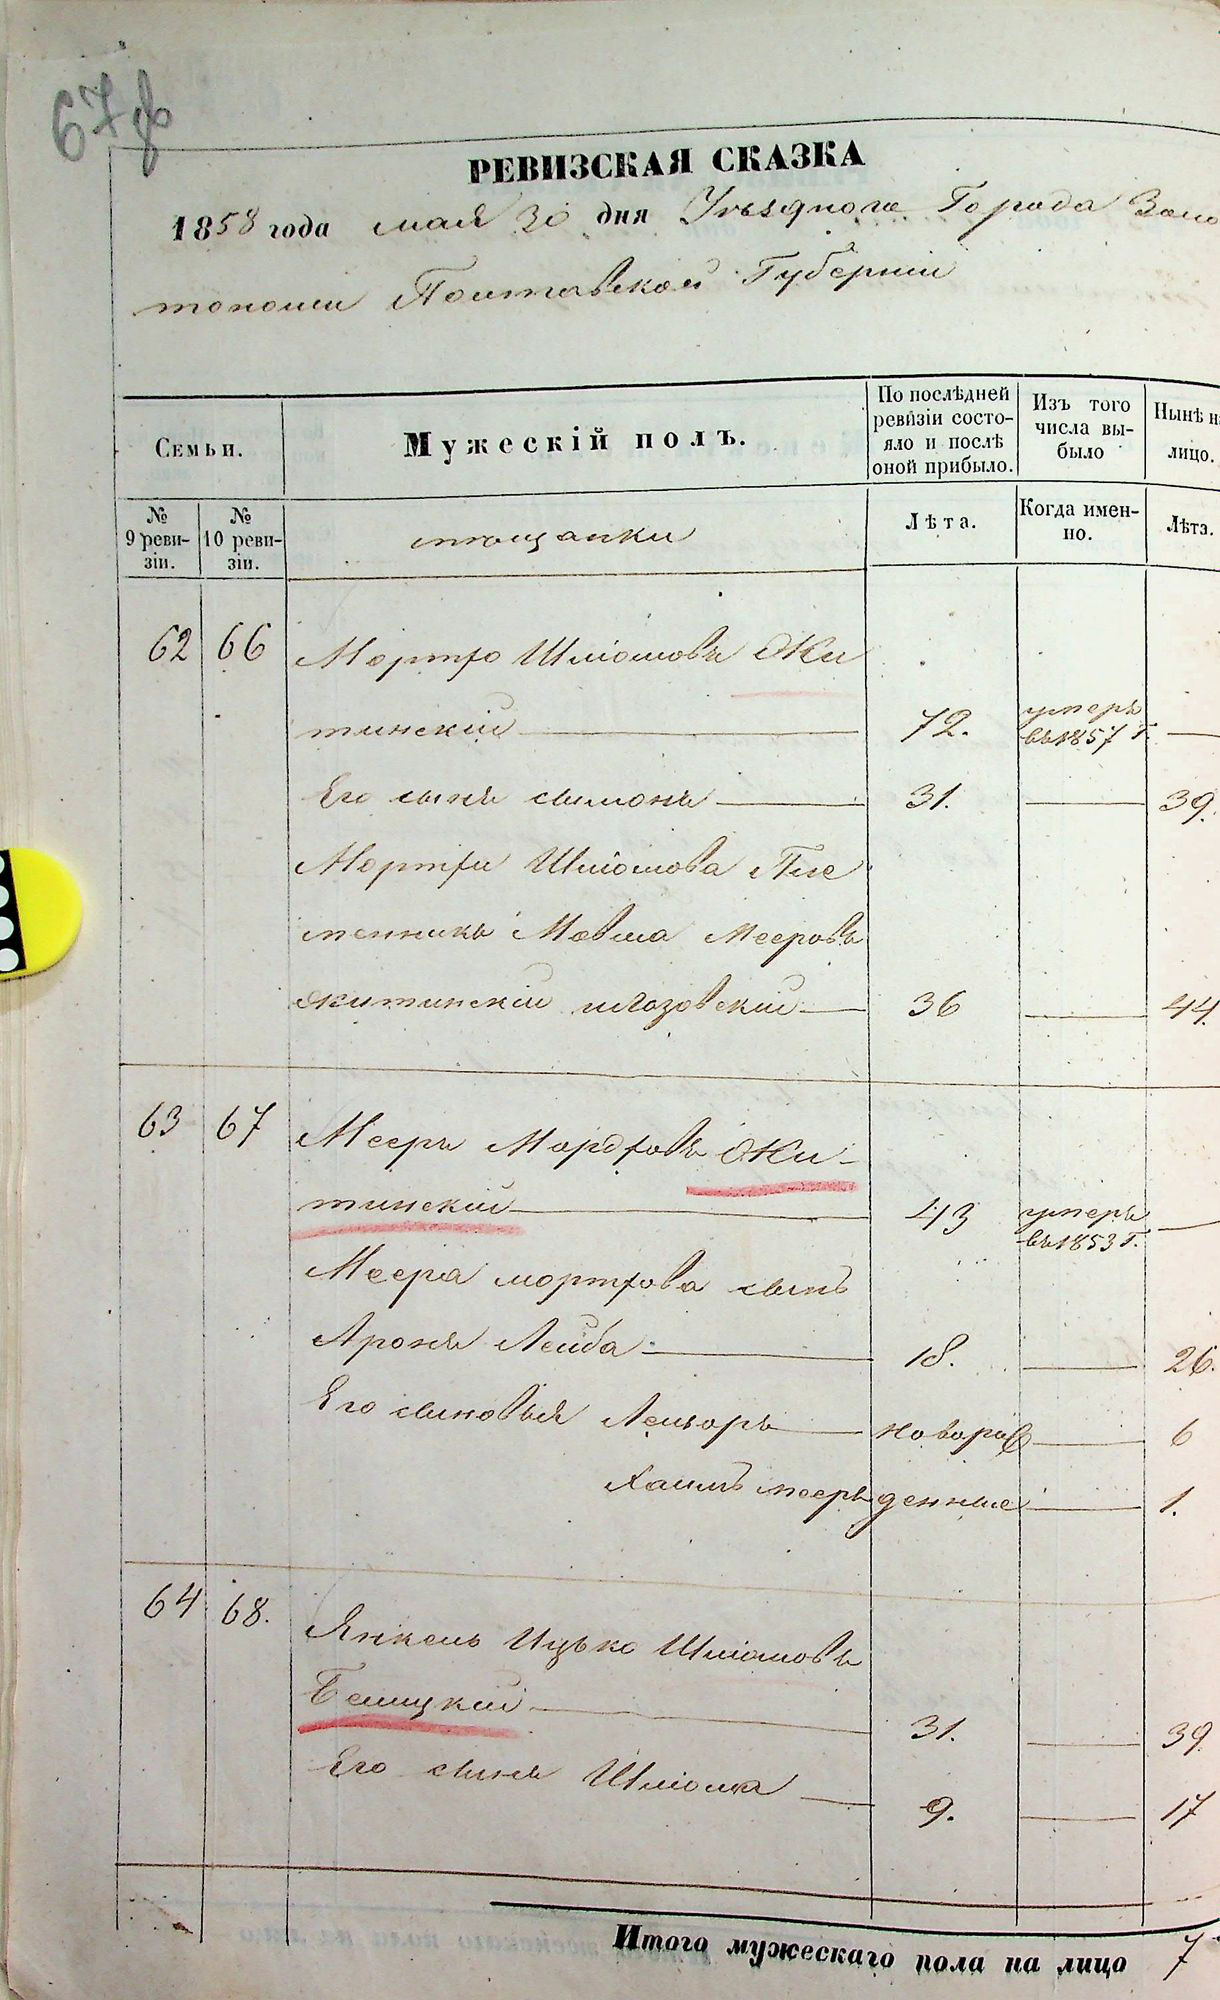 67 ф
РЕВИЗСКАЯ СКАЗКА
1858 года мая 30 дня Уездного Города Золо
тоноши Полтавской Губерніи
Семьи.
Мужескій полъ.
По послѣдней ревизіи состо-
яло и послѣ
оной прибыло.
Изъ того
числа вы-
было
Нынѣ н
лицо.
№
9 реви-
зіи.
№
10 реви-
зіи.
мѣщанки
Лѣта.
Когда имен-
но.
Лѣта.
62 66 Мортхо Шліомовъ Жи
тинскій 72. умеръ въ 1857 г.
Его сынъ симонъ 31. 39.
Мортхи Шліомова Пле
менникъ Мовша Мееровъ
житинскій 36 44.
63 67 Мееръ Мордховъ Жи-
тинскій 43 умеръ въ 1853 г.
Меера мортхова сынъ
Аронъ Лейба 18. 26.
Его сыновья Лейзоръ новорож 6
Хаимъ мееръ денные 1.
64 68. Янкель Ицько Шліомовъ
Белицкій 31. 39
Его сынъ Шліома 9. 17
Итого мужескаго пола на лицо 7